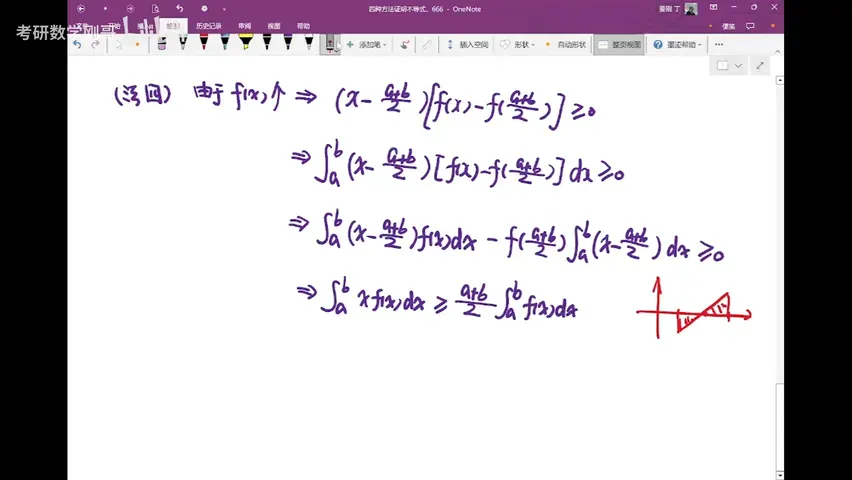 四种方法证明不等式，666 - OneNote
考研数学刚哥
历史记录 审阅 视图 帮助
添加笔 插入空间 形状 自动形状 整页视图 重播帮助 便笺
(法四) 由于f(x)个 ⇒ (x - \frac{a+b}{2})[f(x) - f(\frac{a+b}{2})] ≥ 0
⇒ ∫_a^b (x - \frac{a+b}{2})[f(x) - f(\frac{a+b}{2})]dx ≥ 0
⇒ ∫_a^b (x - \frac{a+b}{2})f(x)dx - f(\frac{a+b}{2})∫_a^b (x - \frac{a+b}{2})dx ≥ 0
⇒ ∫_a^b xf(x)dx ≥ \frac{a+b}{2}∫_a^b f(x)dx